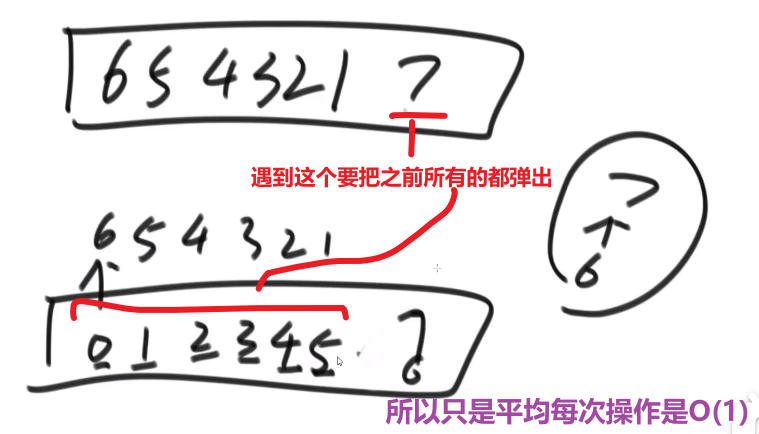 6 5 4 3 2 1 7
遇到这个要把之前所有的都弹出
7
6
6 5 4 3 2 1
0 1 2 3 4 5 7
6
所以只是平均每次操作是O(1)